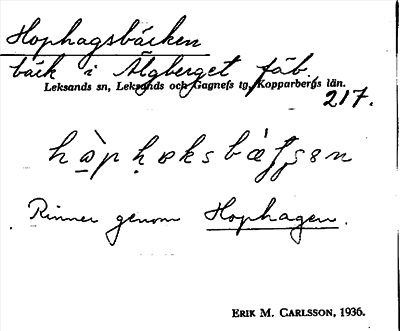 Hophagsbäcken
bäck i Älgberget fäb.
Leksands sn, Leksands och Gagnefs tg, Kopparbergs län.
217.
Rinner genom Hophagen.
ERIK M. CARLSSON, 1936.